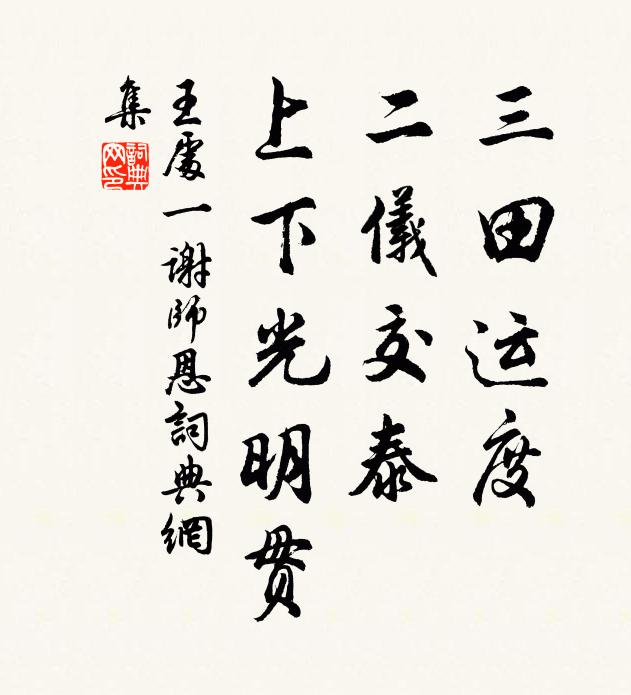 三田运度
二儀交泰
上下光明貫
王處一謝師恩詞典網
集
詞典
网印